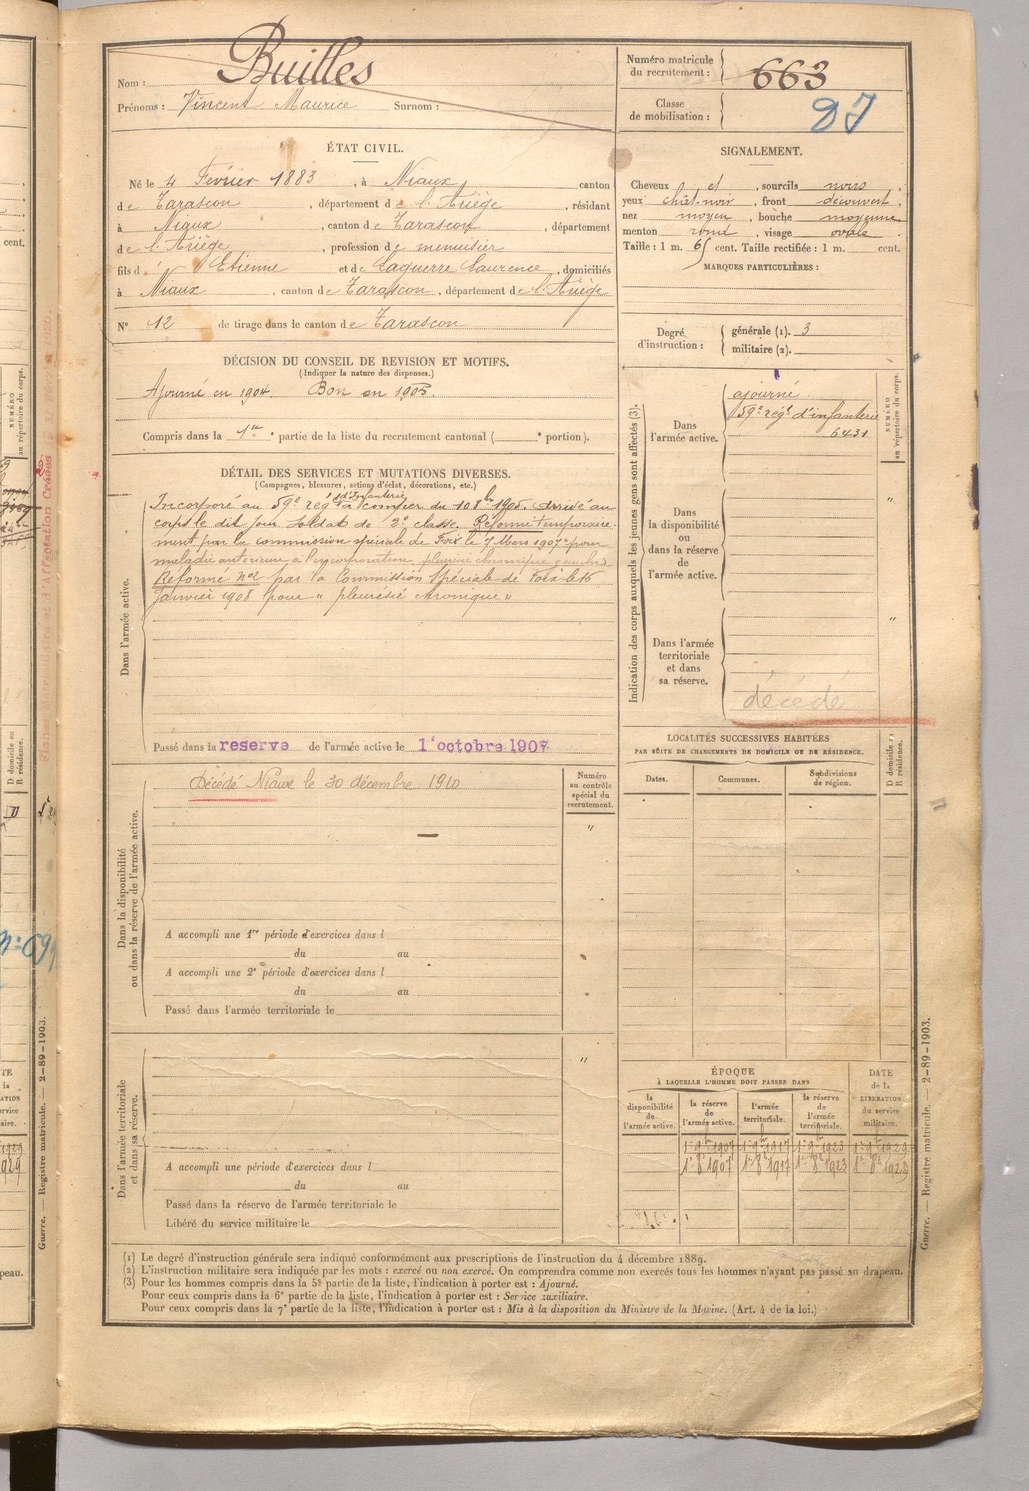 Nom : Builles
Prénoms : Vincent Maurice Surnom :
Numéro matricule du recrutement : 663
Classe de mobilisation :
ÉTAT CIVIL.
Né le 4 Février 1883, à Niaux, canton
de Tarascon, département de l'Ariège, résidant
à Niaux, canton de Tarascon, département
de l'Ariège, profession de menuisier
fils d' Etienne et de Laguerre Laurence, domiciliés
à Niaux, canton de Tarascon, département de l'Ariège
N° 12 de tirage dans le canton de Tarascon
SIGNALEMENT.
Cheveux et, sourcils noirs
yeux chat. noir, front découvert,
nez moyen, bouche moyenne
menton rond, visage ovale
Taille : 1 m. 65 cent. Taille rectifiée : 1 m. cent.
MARQUES PARTICULIÈRES :
Degré d'instruction : générale (1). 3
militaire (2).
DÉCISION DU CONSEIL DE REVISION ET MOTIFS.
(Indiquer la nature des dispenses.)
Ajourné en 1904 Bon en 1905.
Compris dans la 1re partie de la liste du recrutement cantonal ( portion).
DÉTAIL DES SERVICES ET MUTATIONS DIVERSES.
(Campagnes, blessures, actions d'éclat, décorations, etc.)
Dans l'armée active.
Incorporé au 59e régt d'Infanterie à compter du 10 8bre 1905. Arrivé au
corps le dit jour, soldat de 2e classe. Réformé temporaire-
ment par la commission spéciale de Foix le 7 Mars 1907 pour
maladie antérieure à l'incorporation, pleurésie chronique gauche.
Réformé n°2 par la Commission Spéciale de Foix le 16
Janvier 1908 pour " pleurésie chronique "
Passé dans la reserve de l'armée active le 1er octobre 1907
Indication des corps auxquels les jeunes gens sont affectés (3).
NUMÉRO au répertoire du corps.
Dans l'armée active.
ajourné
59e régt d'infanterie
6431
Dans la disponibilité ou dans la réserve de l'armée active.
"
Dans l'armée territoriale et dans sa réserve.
"
décédé
Dans la disponibilité ou dans la réserve de l'armée active.
Décédé Niaux le 30 décembre 1910
Numéro au contrôle spécial du recrutement.
"
A accompli une 1re période d'exercices dans l
du au
A accompli une 2e période d'exercices dans l
du au
Passé dans l'armée territoriale le
LOCALITÉS SUCCESSIVES HABITÉES
PAR SUITE DE CHANGEMENTS DE DOMICILE OU DE RÉSIDENCE.
Dates. Communes. Subdivisions de région. D domicile ou R résidence.
Dans l'armée territoriale et dans sa réserve.
"
A accompli une période d'exercices dans l
du au
Passé dans la réserve de l'armée territoriale le
Libéré du service militaire le
ÉPOQUE
À LAQUELLE L'HOMME DOIT PASSER DANS
DATE de la LIBÉRATION du service militaire.
la disponibilité de l'armée active. la réserve de l'armée active. l'armée territoriale. la réserve de l'armée territoriale.
(1) Le degré d'instruction générale sera indiqué conformément aux prescriptions de l'instruction du 4 décembre 1889.
(2) L'instruction militaire sera indiquée par les mots : exercé ou non exercé. On comprendra comme non exercés tous les hommes n'ayant pas passé au drapeau.
(3) Pour les hommes compris dans la 5e partie de la liste, l'indication à porter est : Ajourné.
Pour ceux compris dans la 6e partie de la liste, l'indication à porter est : Service auxiliaire.
Pour ceux compris dans la 7e partie de la liste, l'indication à porter est : Mis à la disposition du Ministre de la Marine. (Art. 4 de la loi.)
Guerre. — Registre matricule. — 2-89-1903.
Guerre. — Registre matricule. — 2-89-1903.